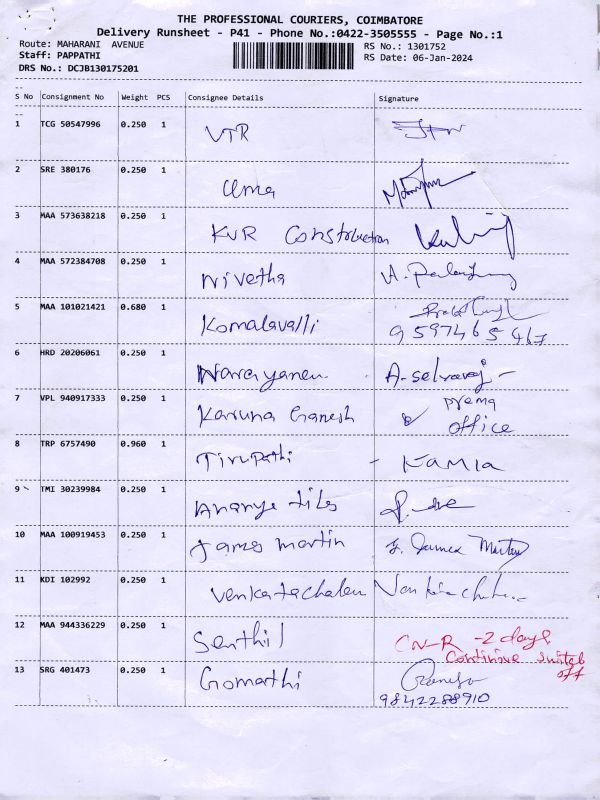 THE PROFESSIONAL COURIERS, COIMBATORE
Delivery Runsheet - P41 - Phone No.:0422-3505555 - Page No.:1
Route: MAHARANI AVENUE RS No.: 1301752
Staff: PAPPATHI RS Date: 06-Jan-2024
DRS No.: DCJB130175201
S No Consignment No Weight PCS Consignee Details Signature
1 TCG 50547996 0.250 1 VTR
2 SRE 380176 0.250 1 Uma
3 MAA 573638218 0.250 1 KVR Constrbuction
4 MAA 572384708 0.250 1 Nivetha
5 MAA 101021421 0.680 1 Komalavalli
9597465467
6 HRD 20206061 0.250 1 Narayanen A-selvaraj -
7 VPL 940917333 0.250 1 Karuna Ganesh prema
office
8 TRP 6757490 0.960 1 Tirupathi - KAMLA
9 TMI 30239984 0.250 1 Ananye tiles
10 MAA 100919453 0.250 1 James martin J. James Martin
11 KDI 102992 0.250 1 Venkatachalem
12 MAA 944336229 0.250 1 Senthil CN-R -2 days
Continue Switch
off
13 SRG 401473 0.250 1 Gomathi
9842288910